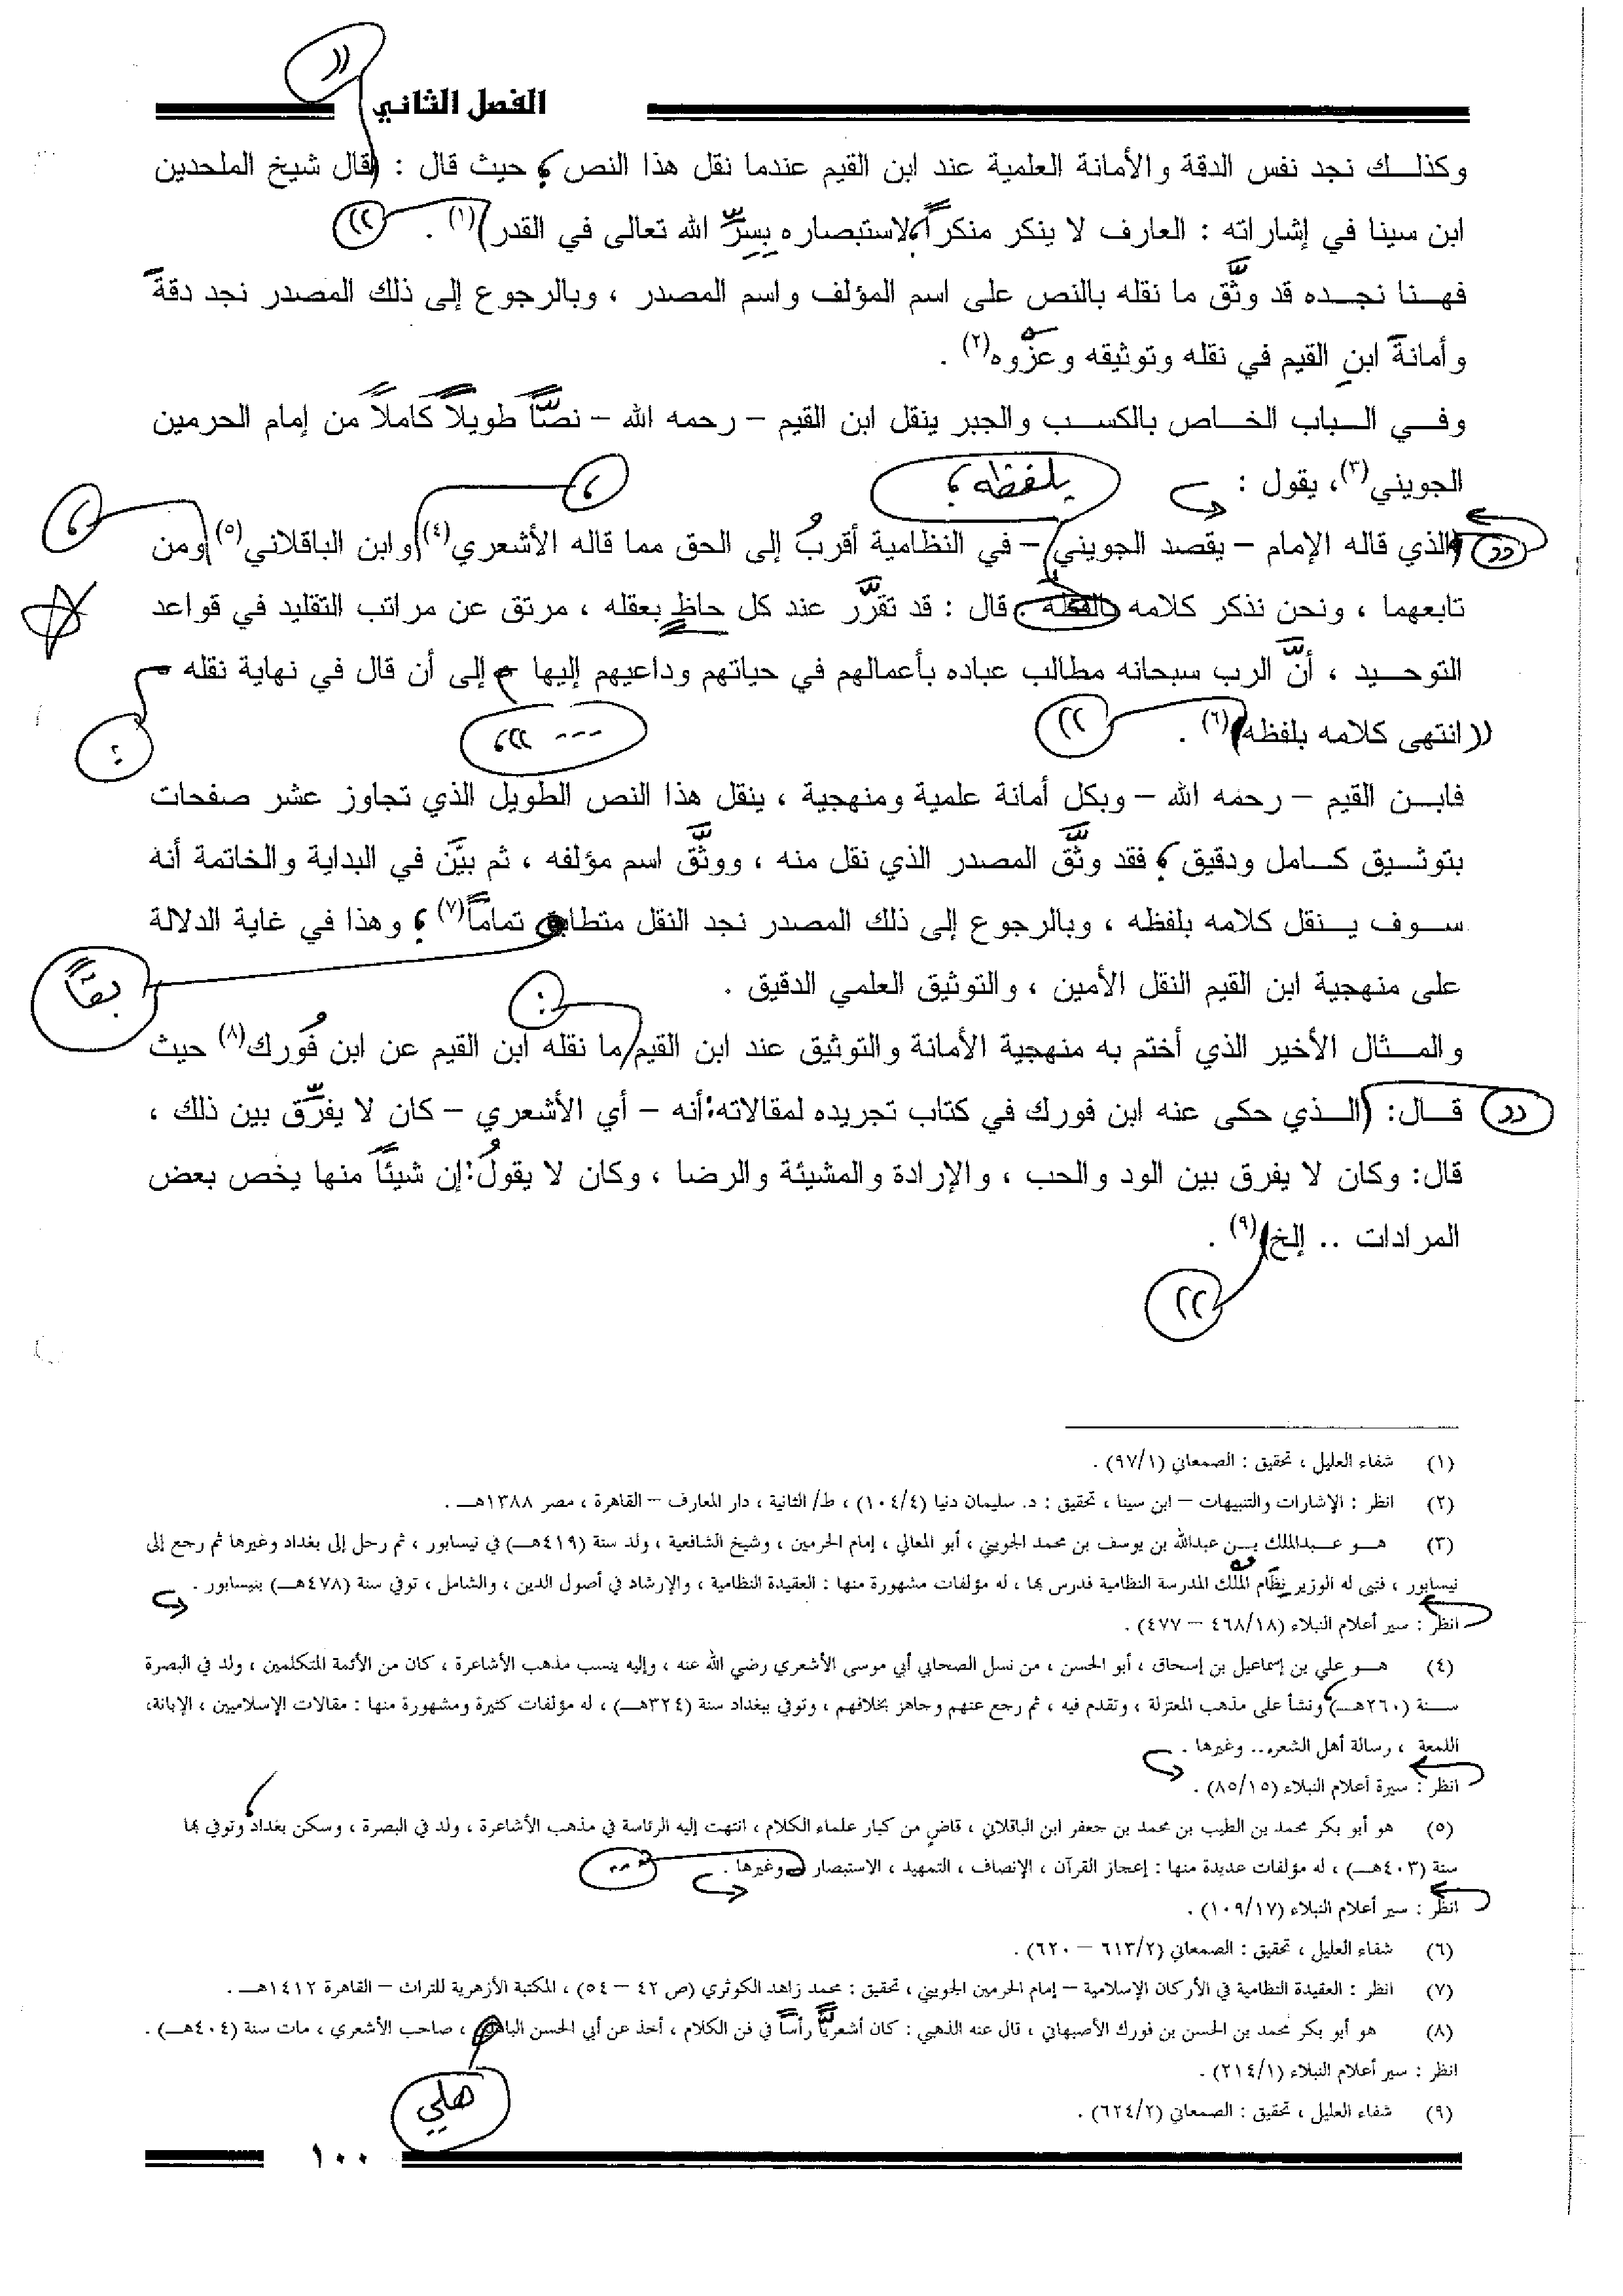 ((
الفصل الثاني
وكذلك نجد نفس الدقة والأمانة العلمية عند ابن القيم عندما نقل هذا النص ، حيث قال : (قال شيخ الملحدين
ابن سينا في إشاراته : العارف لا ينكر منكراً ، لاستبصاره بِسِرِّ الله تعالى في القدر)(١) .
))
فهنا نجده قد وثَّق ما نقله بالنص على اسم المؤلف واسم المصدر ، وبالرجوع إلى ذلك المصدر نجد دقةَ
وأمانةَ ابنِ القيم في نقله وتوثيقه وعزْوه(٢) .
وفي الباب الخاص بالكسب والجبر ينقل ابن القيم – رحمه الله – نصَّاً طويلاً كاملاً من إمام الحرمين
الجويني(٣)، يقول :
بلفظه ،
،
،
))
(الذي قاله الإمام – يقصد الجويني – في النظامية أقربُ إلى الحق مما قاله الأشعري(٤) وابن الباقلاني(٥) ومن
تابعهما ، ونحن نذكر كلامه بلفظه . قال : قد تقرَّر عند كل حاظٍ بعقله ، مرتق عن مراتب التقليد في قواعد
التوحيد ، أنَّ الرب سبحانه مطالب عباده بأعمالهم في حياتهم وداعيهم إليها – إلى أن قال في نهاية نقله –
((انتهى كلامه بلفظه)(٦) .
))
... )) ،
:
فابن القيم – رحمه الله – وبكل أمانة علمية ومنهجية ، ينقل هذا النص الطويل الذي تجاوز عشر صفحات
بتوثيق كامل ودقيق ، فقد وثَّق المصدر الذي نقل منه ، ووثَّق اسم مؤلفه ، ثم بيَّن في البداية والخاتمة أنه
سوف ينقل كلامه بلفظه ، وبالرجوع إلى ذلك المصدر نجد النقل متطابق تماماً(٧) ، وهذا في غاية الدلالة
بقاً
على منهجية ابن القيم النقل الأمين ، والتوثيق العلمي الدقيق .
:
والمثال الأخير الذي أختم به منهجية الأمانة والتوثيق عند ابن القيم ما نقله ابن القيم عن ابن فُورك(٨) حيث
))
قال: (الذي حكى عنه ابن فورك في كتاب تجريده لمقالاته: أنه – أي الأشعري – كان لا يفرِّق بين ذلك ،
قال: وكان لا يفرق بين الود والحب ، والإرادة والمشيئة والرضا ، وكان لا يقولُ: إن شيئاً منها يخص بعض
المرادات .. إلخ)(٩) .
))
(١) شفاء العليل ، تحقيق : الصمعاني (٩٧/١) .
(٢) انظر : الإشارات والتنبيهات – ابن سينا ، تحقيق : د. سليمان دنيا (١٠٤/٤) ، ط/ الثانية ، دار المعارف – القاهرة ، مصر ١٣٨٨هـ .
(٣) هو عبدالملك بن عبدالله بن يوسف بن محمد الجويني ، أبو المعالي ، إمام الحرمين ، وشيخ الشافعية ، ولد سنة (٤١٩هـ) في نيسابور ، ثم رحل إلى بغداد وغيرها ثم رجع إلى
نيسابور ، فبنى له الوزير نِظَام المُلْك المدرسة النظامية فدرس بها ، له مؤلفات مشهورة منها : العقيدة النظامية ، والإرشاد في أصول الدين ، والشامل ، توفي سنة (٤٧٨هـ) بنيسابور .
انظر : سير أعلام النبلاء (٤٦٨/١٨ – ٤٧٧) .
(٤) هو علي بن إسماعيل بن إسحاق ، أبو الحسن ، من نسل الصحابي أبي موسى الأشعري رضي الله عنه ، وإليه ينسب مذهب الأشاعرة ، كان من الأئمة المتكلمين ، ولد في البصرة
سنة (٢٦٠هـ) ونشأ على مذهب المعتزلة ، وتقدم فيه ، ثم رجع عنهم وجاهز بخلافهم ، وتوفي ببغداد سنة (٣٢٤هـ) ، له مؤلفات كثيرة ومشهورة منها : مقالات الإسلاميين ، الإبانة،
اللمعة ، رسالة أهل الشعر.. وغيرها .
انظر : سيرة أعلام النبلاء (٨٥/١٥) .
(٥) هو أبو بكر محمد بن الطيب بن محمد بن جعفر ابن الباقلاني ، قاضٍ من كبار علماء الكلام ، انتهت إليه الرئاسة في مذهب الأشاعرة ، ولد في البصرة ، وسكن بغداد وتوفي بها
سنة (٤٠٣هـ) ، له مؤلفات عديدة منها : إعجاز القرآن ، الإنصاف ، التمهيد ، الاستبصار وغيرها .
...
انظر : سير أعلام النبلاء (١٠٩/١٧) .
(٦) شفاء العليل ، تحقيق : الصمعاني (٦١٣/٢ – ٦٢٠) .
(٧) انظر : العقيدة النظامية في الأركان الإسلامية – إمام الحرمين الجويني ، تحقيق : محمد زاهد الكوثري (ص ٤٢ – ٥٤) ، المكتبة الأزهرية للتراث – القاهرة ١٤١٢هـ .
(٨) هو أبو بكر محمد بن الحسن بن فورك الأصبهاني ، قال عنه الذهبي : كان أشعريَّاً رأساً في فن الكلام ، أخذ عن أبي الحسن ، صاحب الأشعري ، مات سنة (٤٠٤هـ) .
انظر : سير أعلام النبلاء (٢١٤/١) .
هلي
(٩) شفاء العليل ، تحقيق : الصمعاني (٦٢٤/٢) .
١٠٠